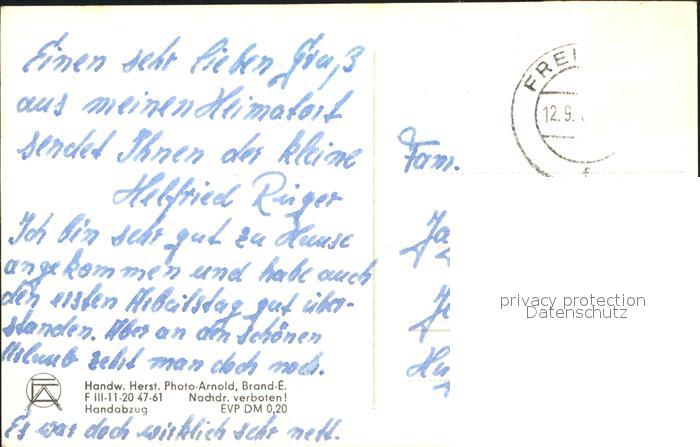 Einen sehr lieben Gruß
aus meinen Heimatort
sendet Ihnen der kleine
Helfried Rüger
Ich bin sehr gut zu Hause
angekommen und habe auch
den ersten Arbeitstag gut über-
standen. Aber an den schönen
Urlaub zehrt man doch noch.
Handw. Herst. Photo-Arnold, Brand-E.
F III-11-20 47-61 Nachdr. verboten!
Handabzug EVP DM 0,20
Es war doch wirklich sehr nett.
FREI
12.9.
Fam.
privacy protection
Datenschutz